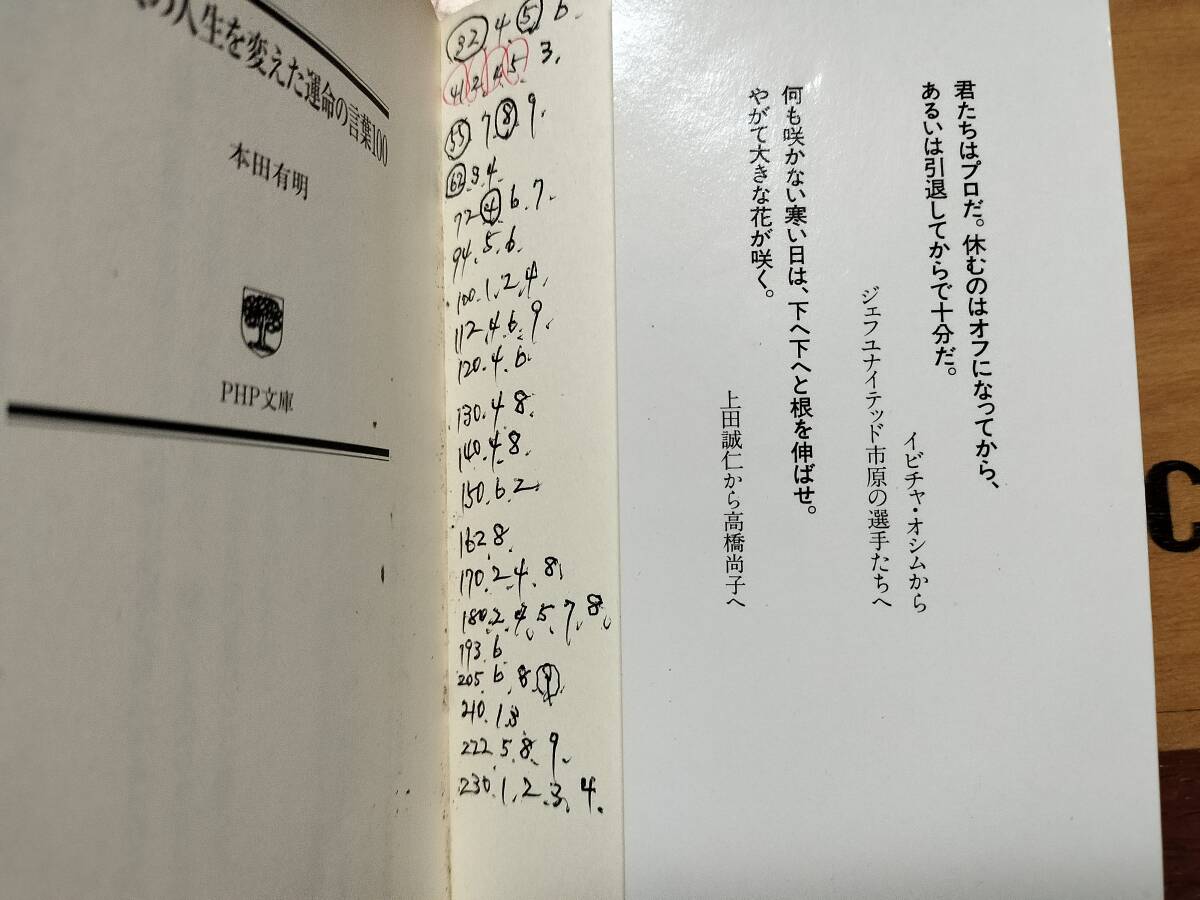 の人生を変えた運命の言葉100
本田有明
PHP文庫
32. 4. 5. 6.
41. 2. 4. 5. 3.
55 7. 8. 9.
62. 3. 4.
72 4. 6. 7.
94. 5. 6.
100. 1. 2. 4.
112. 4. 6. 9.
120. 4. 6.
130. 4 8.
140. 4. 8.
150. 6. 2
162 8.
170. 2. 4. 8.
180. 2. 4. 5. 7. 8.
193. 6.
205. 6. 8. 9.
210. 1. 8
222. 5. 8. 9.
230. 1. 2. 3. 4.
君たちはプロだ。休むのはオフになってから、
あるいは引退してからで十分だ。
イビチャ・オシムから
ジェフユナイテッド市原の選手たちへ
何も咲かない寒い日は、下へ下へと根を伸ばせ。
やがて大きな花が咲く。
上田誠仁から高橋尚子へ
C